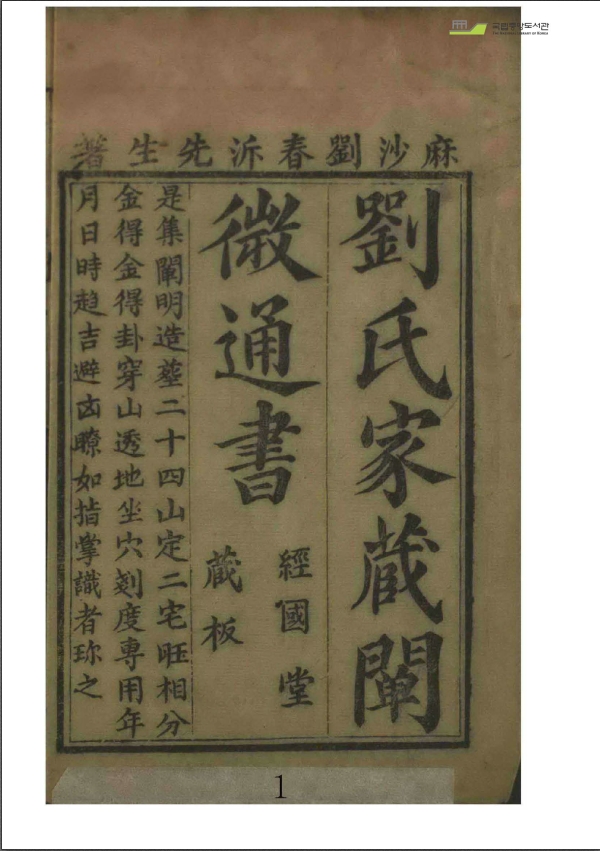 국립중앙도서관
THE NATIONAL LIBRARY OF KOREA
麻沙劉春沂先生著
劉氏家蔵闡
微通書
經國堂
蔵板
是集闡明造塟二十四山定二宅旺相分
金得金得卦穿山透地坐穴剡度專用年
月日時趋吉避凶瞭如指掌識者珎之
1